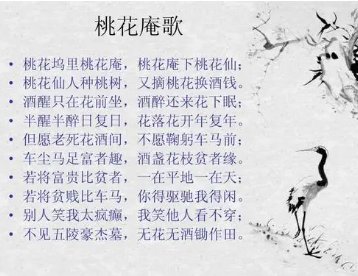 桃花庵歌
• 桃花坞里桃花庵，桃花庵下桃花仙；
• 桃花仙人种桃树，又摘桃花换酒钱。
• 酒醒只在花前坐，酒醉还来花下眠；
• 半醒半醉日复日，花落花开年复年。
• 但愿老死花酒间，不愿鞠躬车马前；
• 车尘马足富者趣，酒盏花枝贫者缘。
• 若将富贵比贫者，一在平地一在天；
• 若将贫贱比车马，你得驱驰我得闲。
• 别人笑我太疯癫，我笑他人看不穿；
• 不见五陵豪杰墓，无花无酒锄作田。